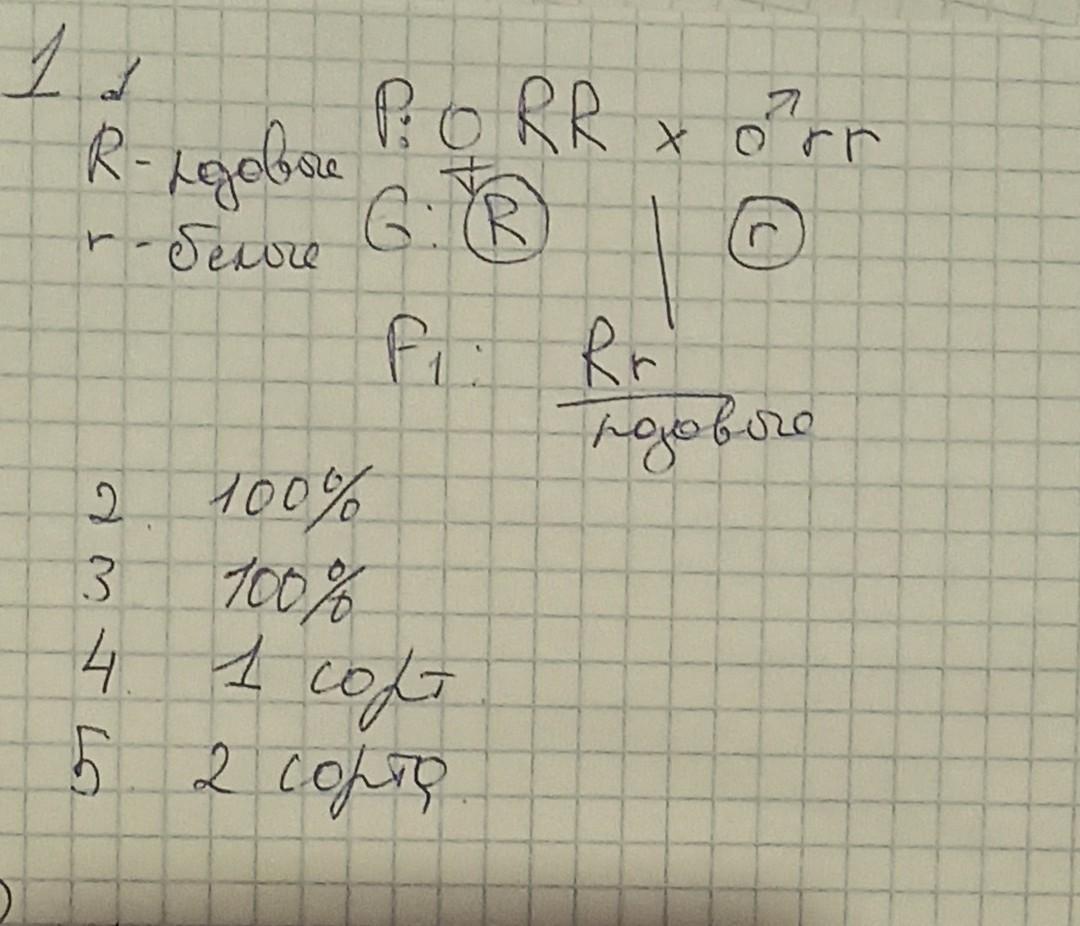 1 1
P: ♀ RR x ♂ rr
R - рдовые
G: R r
r - белые
F1: Rr
рдовые
2. 100%
3 100%
4. 1 сорт
5. 2 сорта.